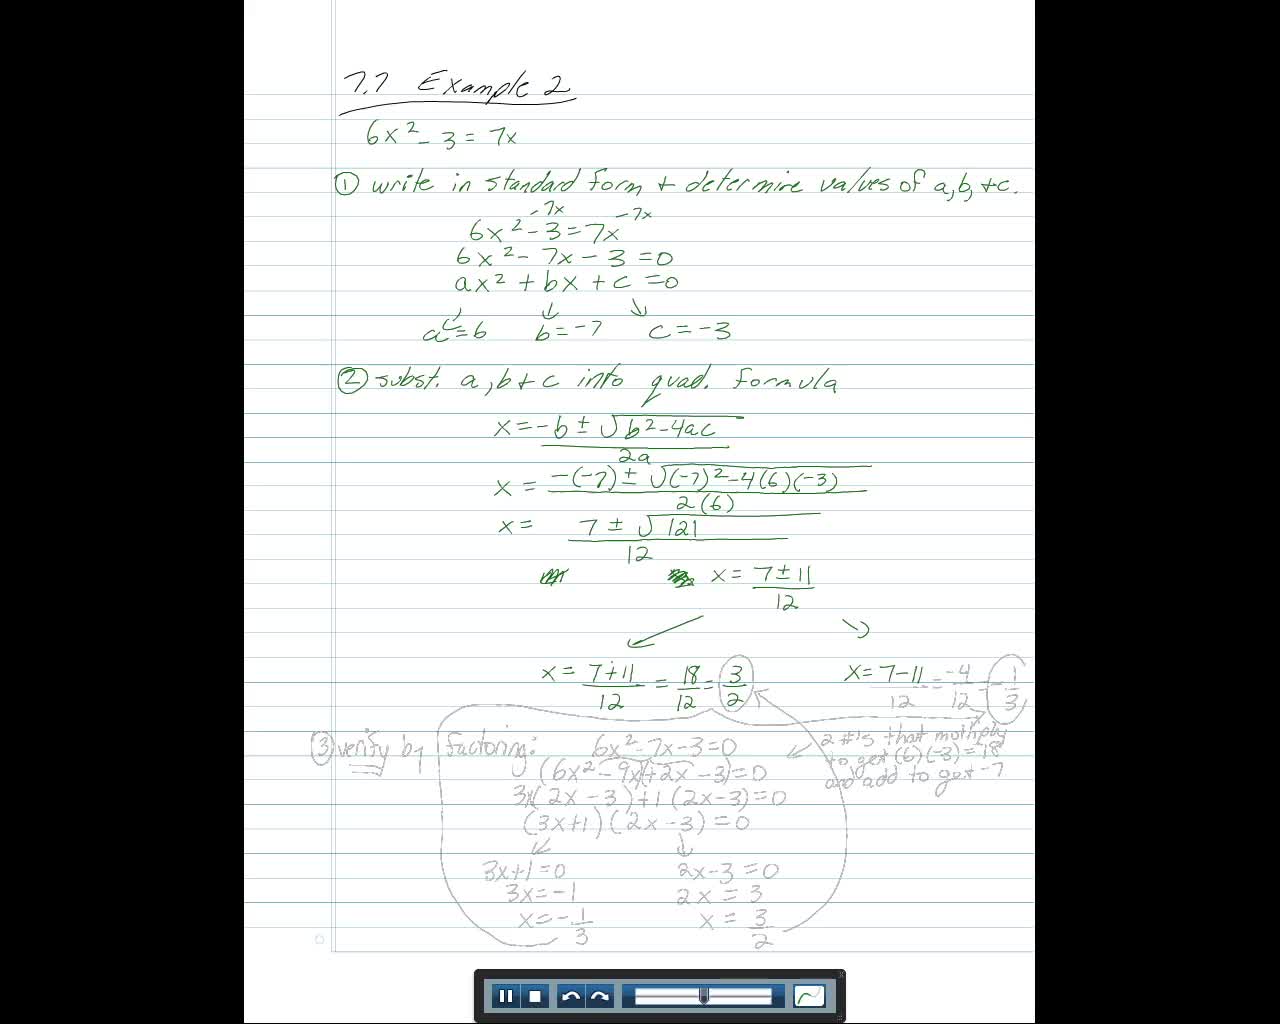 7.7 Example 2
6x² - 3 = 7x
① write in standard form + determine values of a, b, + c.
-7x -7x
6x² - 3 = 7x
6x² - 7x - 3 = 0
ax² + bx + c = 0
a = 6 b = -7 c = -3
② subst. a, b + c into quad. formula
x = -b ± √b² - 4ac
2a
x = -(-7) ± √(-7)² - 4(6)(-3)
2(6)
x = 7 ± √121
12
x = 7 ± 11
12
x = 7 + 11 = 18 = 3
12 12 2
x = 7 - 11 = -4 = -1
12 12 3
③ verify by factoring: 6x² - 7x - 3 = 0
(6x² - 9x)(+2x - 3) = 0
3x(2x - 3) + 1(2x - 3) = 0
(3x + 1)(2x - 3) = 0
2 #'s that multiply
to get (6)(-3) = -18
and add to get -7
3x + 1 = 0 2x - 3 = 0
3x = -1 2x = 3
x = -1 x = 3
3 2